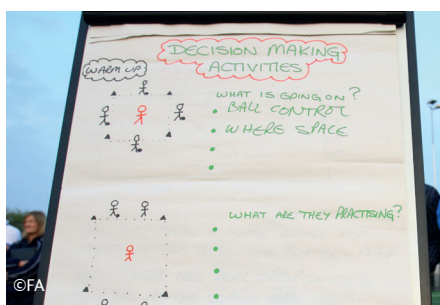 DECISION MAKING
ACTIVITIES
WARM UP
WHAT IS GOING ON?
• BALL CONTROL
• WHERE SPACE
•
•
WHAT ARE THEY PRACTISING?
•
•
•
•
©FA